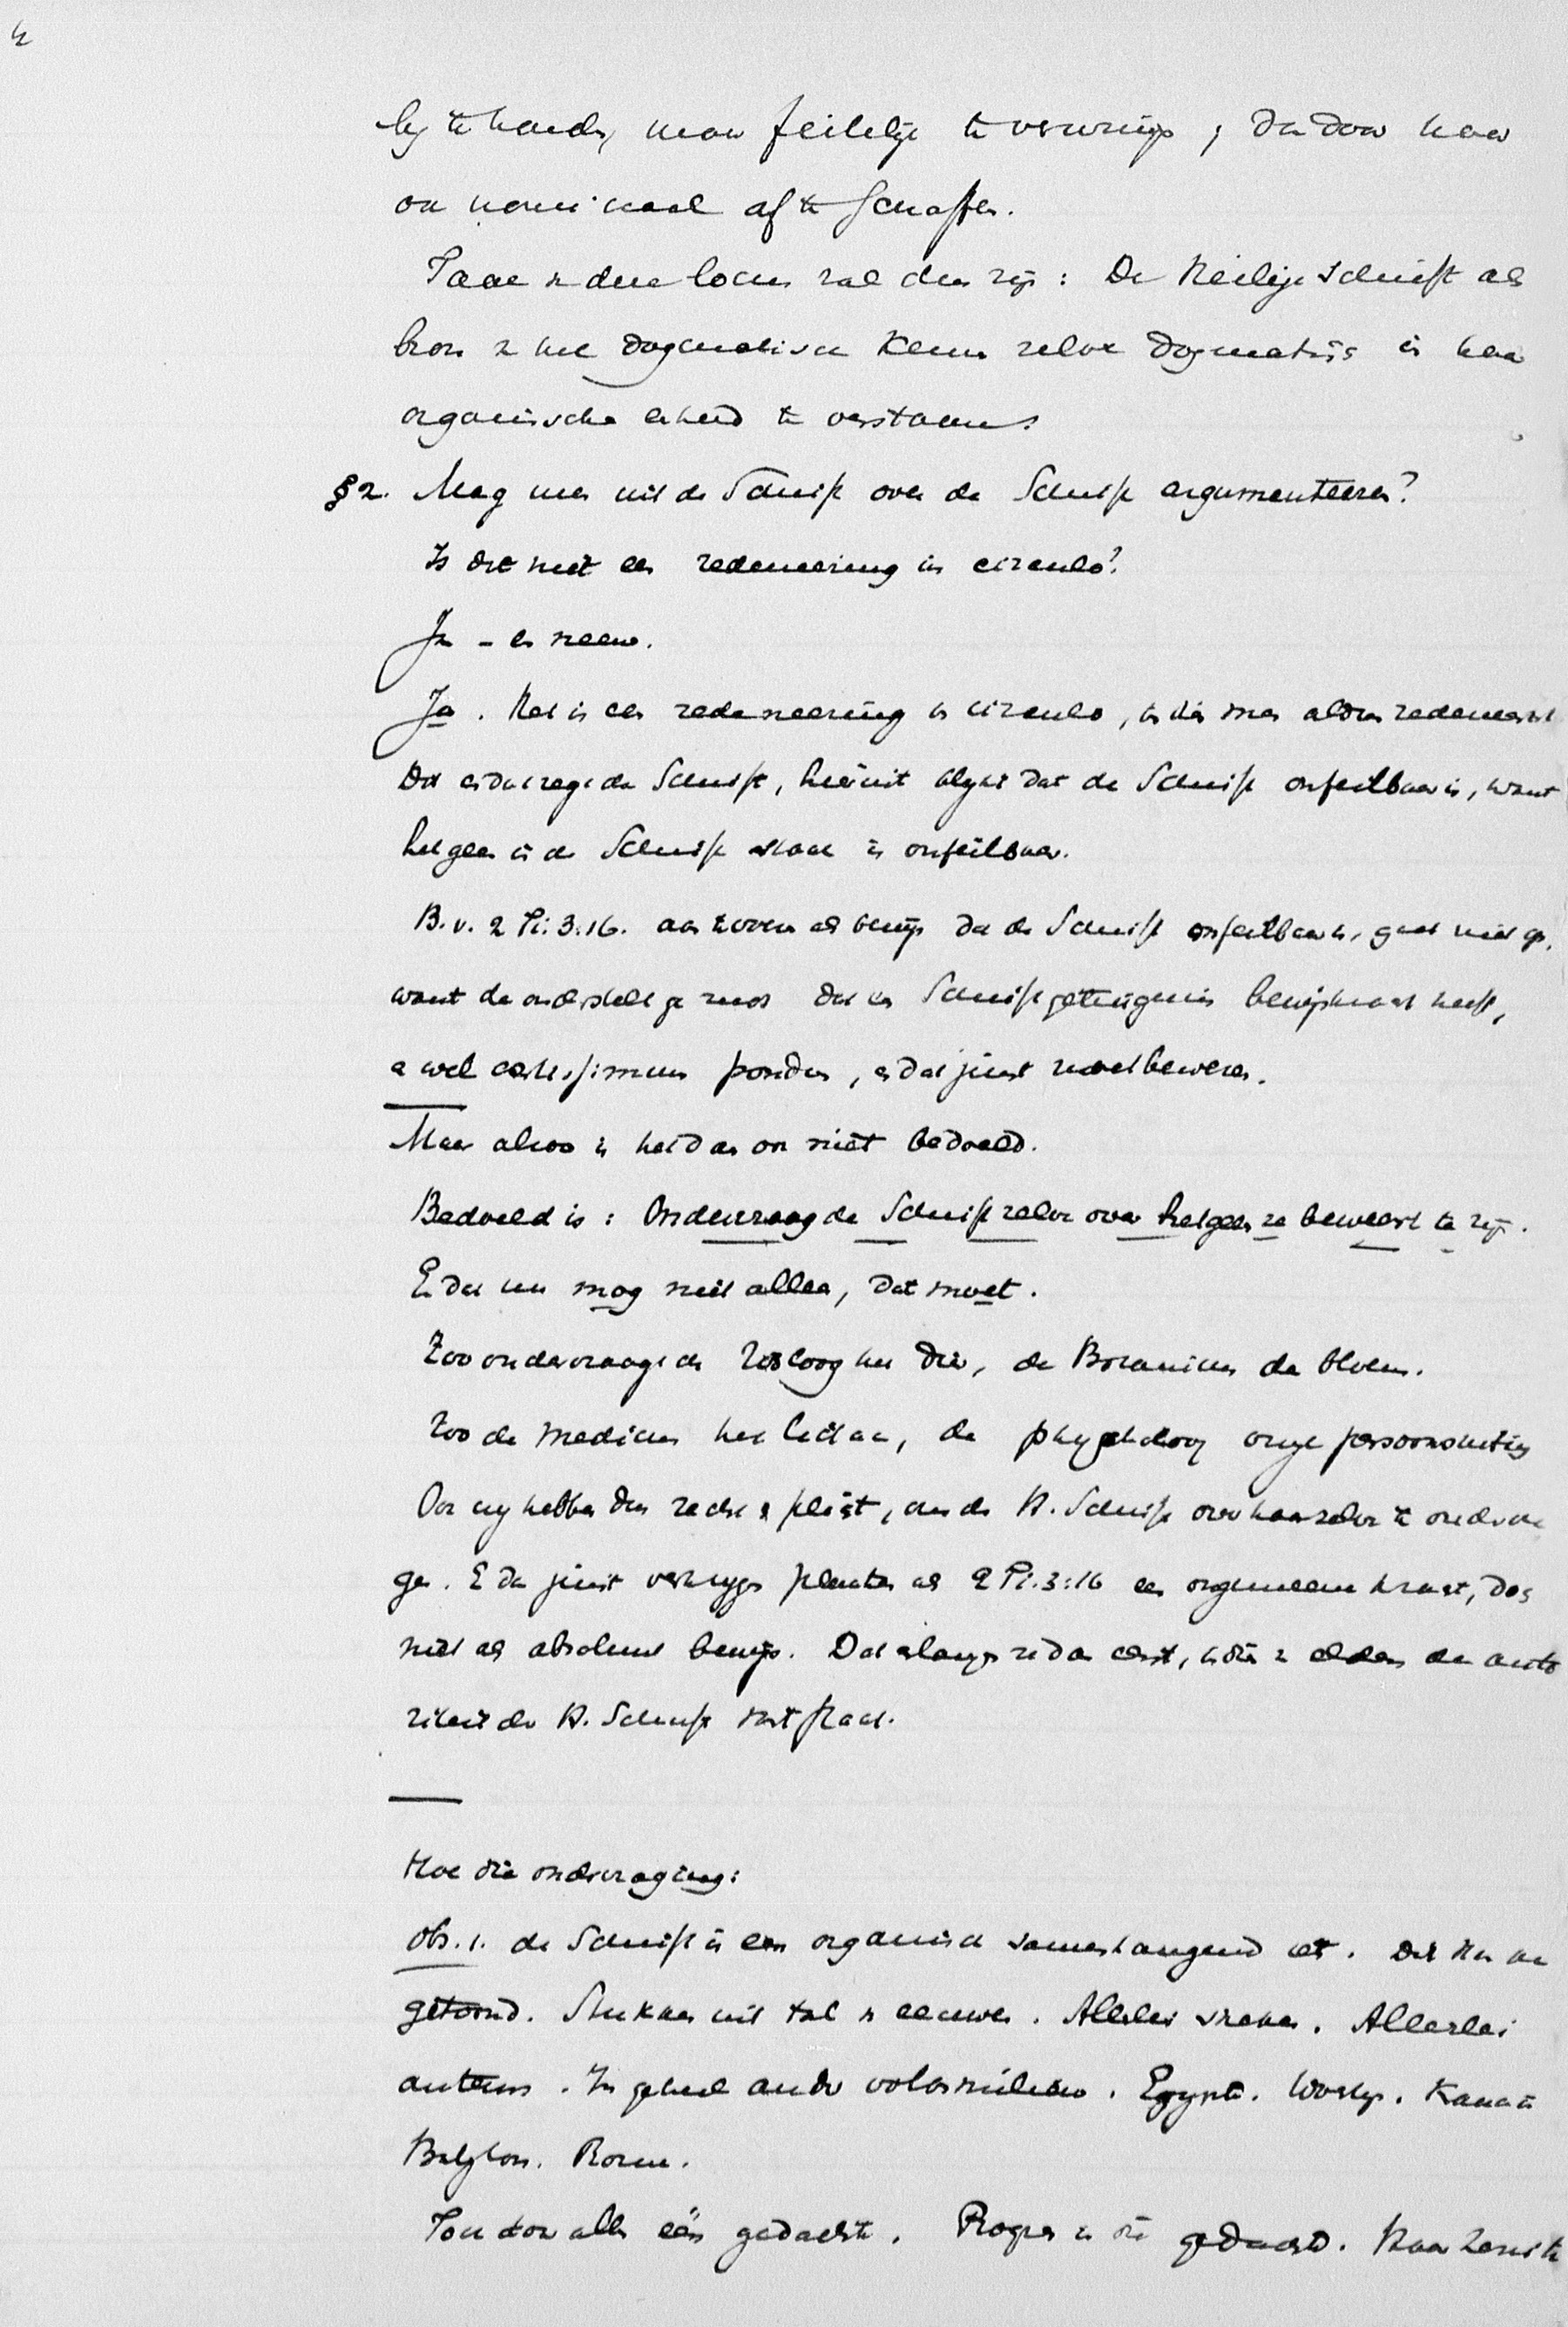 4
by te houden, maar feitelijk te verwerpen, dan door haar
ook nominaal af te schaffen.
Taak van deze locus zal dus zijn: De Heilige Schrift als
bron van het dogmatisch kennen zelve dogmatisch in haar
organische eenheid te verstaan.
§2. Mag men uit de Schrift over de Schrift argumenteeren?
Is dit niet een redeneering in circulo?
Ja – en neen.
Ja. Het is een redeneering in circulo, indien men aldus redeneert
Dit en dat zegt de Schrift, hieruit blijkt dat de Schrift onfeilbaar is, want
hetgeen in de Schrift staat is onfeilbaar.
B.v. 2 Ti. 3.16. aan te voeren als bewijs dat de Schrift onfeilbaar is, gaat niet op,
want dan onderstelt ge reeds dat een Schriftgetuigenis bewijskracht heeft,
en wel certissimum pondus, en dat juist moet bewezen.
Maar alzoo is het dan ook niet bedoeld.
Bedoeld is: Ondervraag de Schrift zelve over hetgeen ze beweert te zijn.
En dat nu mag niet alleen, dat moet.
Zoo ondervraagt de Zoöloog het dier, de Botanicus de bloem.
Zoo de medicus het lichaam, de psycholoog onze persoonlijkheid
Ook wij hebben dus recht en plicht, om de H. Schrift over haarzelve te ondervra
gen. En dan juist verkrijgen plaatsen als 2 Ti. 3:16 een ongemeene kracht, doch
niet als absoluut bewijs. Dat erlangen ze dan eerst, indien van elders de auto
riteit der H. Schrift vast staat.
Hoe die ondervraging:
Obs. 1. de Schrift is een organisch samenhangend iets. Dit kan aan
getoond. Stukken uit tal van eeuwen. Allerlei vormen. Allerlei
auteurs. In geheel ander volksmilieu. Egypte. Woestijn. Kanaän
Babylon. Rome.
Toch door alles één gedachte. Progres in die gedachte. Haar